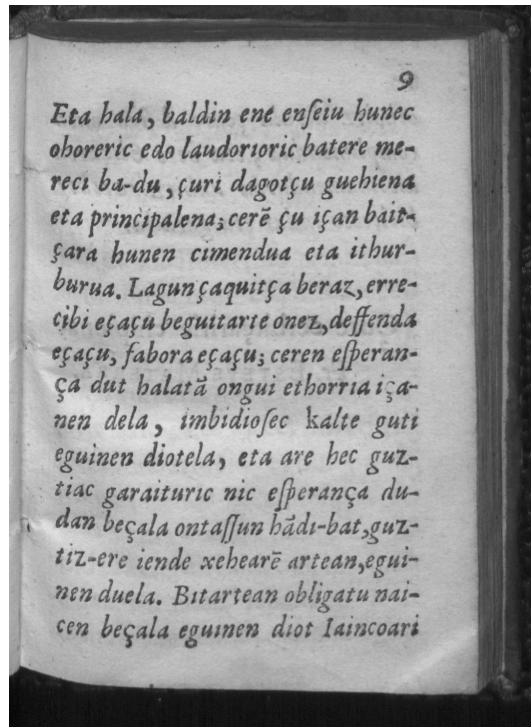 9
Eta hala, baldin ene enſeiu hunec
ohoreric edo laudorioric batere me-
reci ba-du, çuri dagotçu guehiena
eta principalena; cerẽ çu içan bait-
çara hunen cimendua eta ithur-
burua. Lagun çaquitça beraz, erre-
cibi eçaçu beguitarte onez, deffenda
eçaçu, fabora eçaçu; ceren eſperan-
ça dut halatã ongui ethorria iça-
nen dela, imbidioſec kalte guti
eguinen diotela, eta are hec guz-
tiac garaituric nic eſperança du-
dan beçala ontaſſun hãdi-bat, guz-
tiz-ere iende xehearẽ artean, egui-
nen duela. Bitartean obligatu nai-
cen beçala eguinen diot Iaincoari